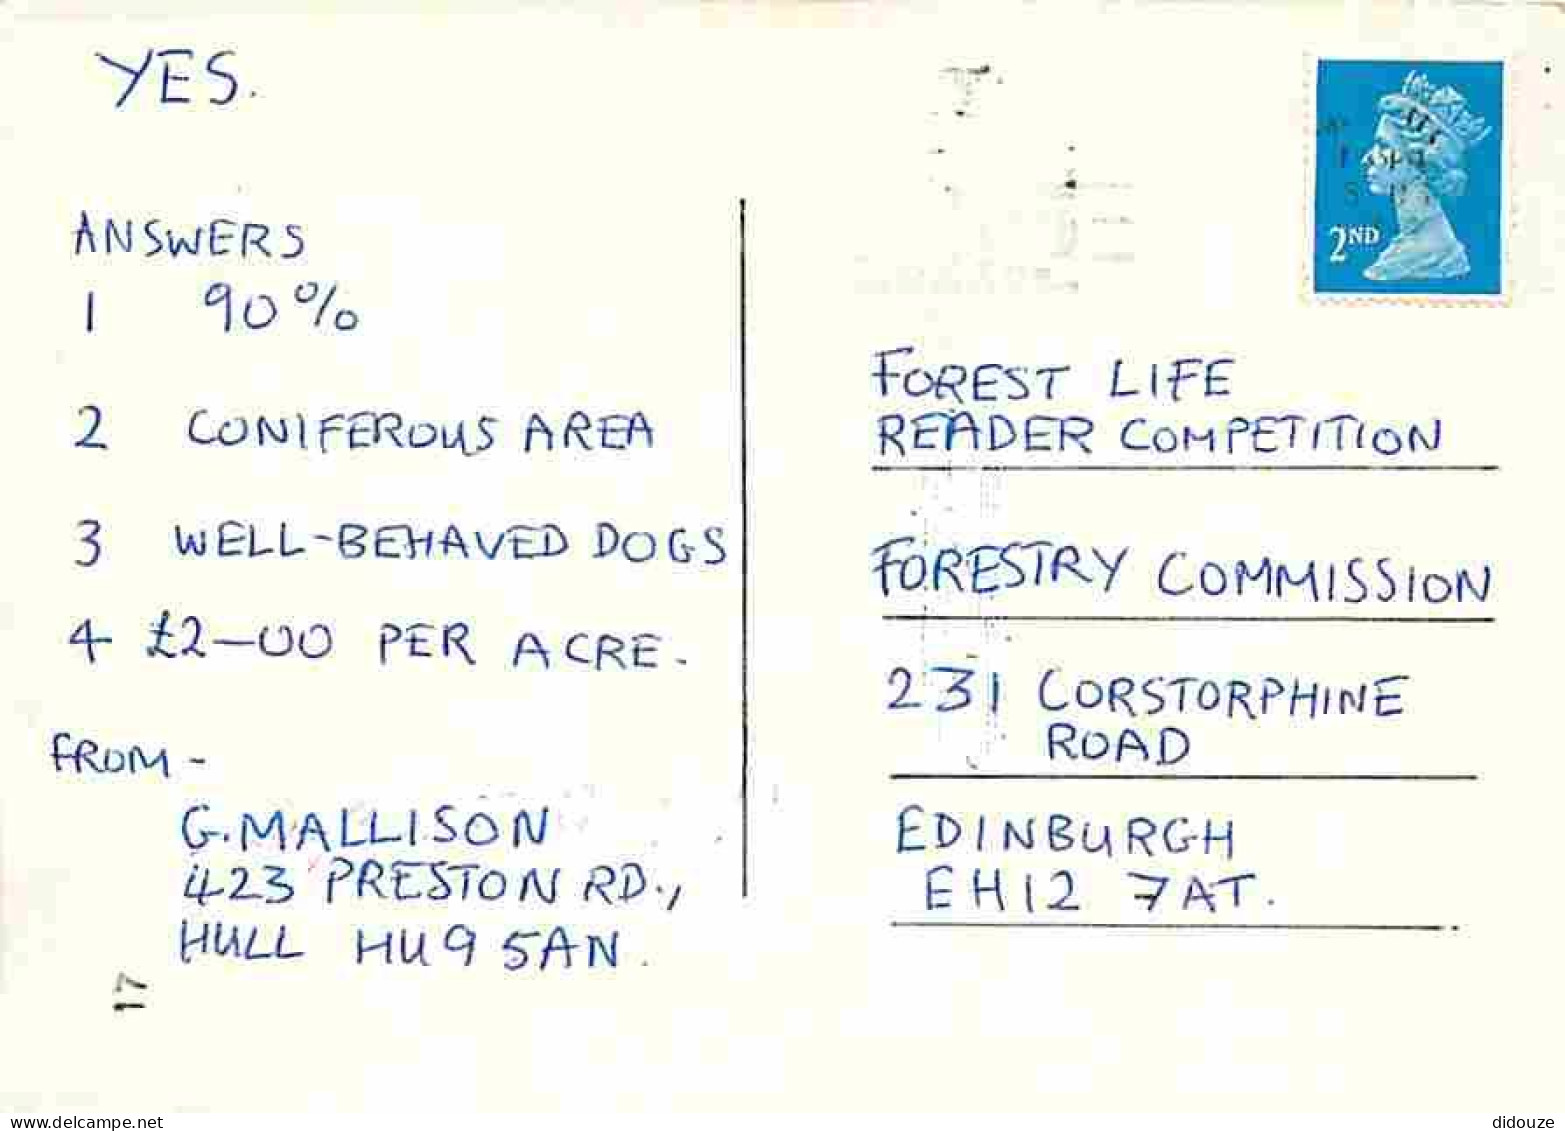 YES.
ANSWERS
1 90%
2 CONIFEROUS AREA
3 WELL-BEHAVED DOGS
4 £2-00 PER ACRE.
FROM-
G. MALLISON
423 PRESTON RD.,
HULL HU9 5AN.
17
2ND
FOREST LIFE
READER COMPETITION
FORESTRY COMMISSION
231 CORSTORPHINE
ROAD
EDINBURGH
EH12 7AT.
delcampe.net
didouze